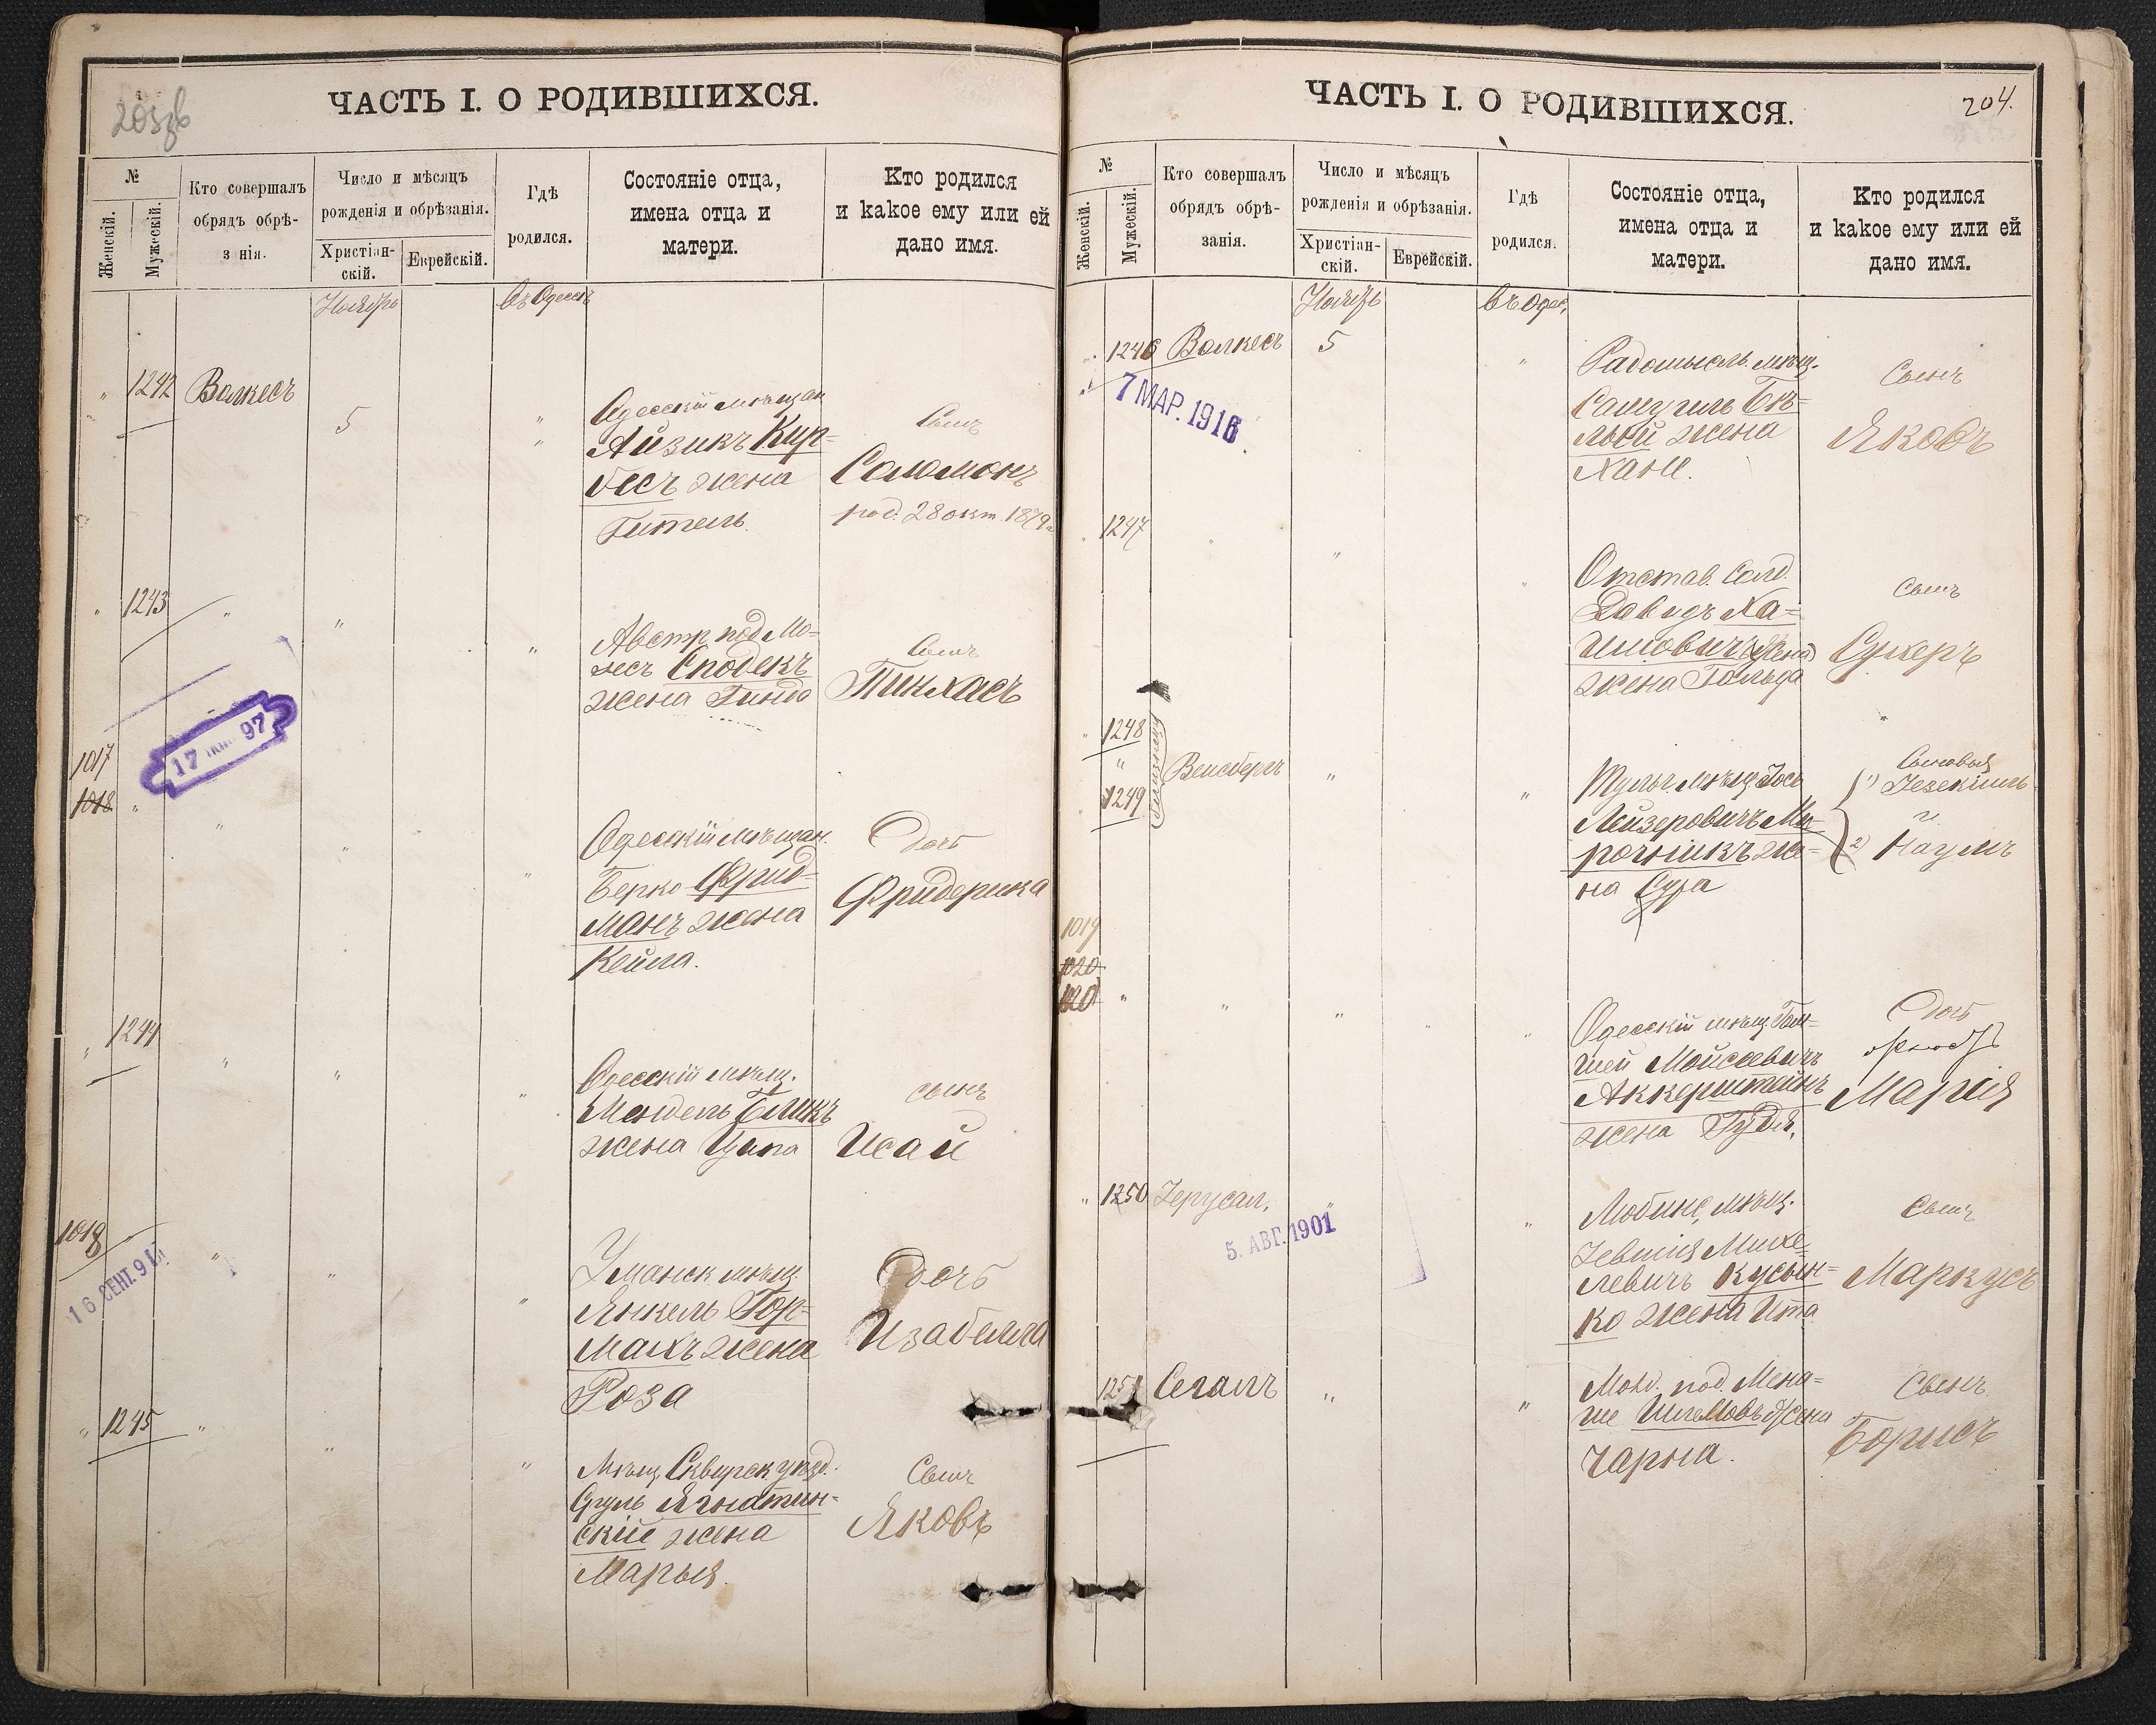 203об
ЧАСТЬ I. О РОДИВШИХСЯ.
№
Женскій.
Мужескій.
Кто совершалъ
обрядъ обрѣ-
з нія.
Число и мѣсяцъ
рожденія и обрѣзанія.
Христіан-
скій.
Еврейскій.
Гдѣ
родился.
Состояніе отца,
имена отца и
матери.
Кто родился
и какое ему или ей
дано имя.
Ноябрь
Въ Одессѣ
" 1242 Волкесъ
5
"
Одесскій мѣщан
Айзикъ Кир-
бесъ жена
Гитель.
Сынъ
Соломонъ
род. 28 окт. 1879 г.
" 1243 " " "
Австр. под. Мо-
несъ Сподекъ
жена Гинда
Сынъ
Пинхасъ
17 97
1017
1018 " " " "
Одесскій мѣщан.
Берко Фрид-
манъ жена
Кейла.
Дочь
Фридерика
" 1244 " " "
Одесскій мѣщ.
Мендель Бликъ
жена Ципа
сынъ
Исай
1018
16 СЕНТ. 91
" " "
Уманск мѣщ.
Янкель Гор-
махъ жена
Роза
Дочь
Изабелла
" 1245 " " "
Мѣщ Сквирск уѣзд.
Сруль Ягнатин-
скій жена
Марья.
Сынъ
Яковъ
ЧАСТЬ I. О РОДИВШИХСЯ.
204.
№
Женскій.
Мужескій.
Кто совершалъ
обрядъ обрѣ-
занія.
Число и мѣсяцъ
рожденія и обрѣзанія.
Христіан-
скій.
Еврейскій.
Гдѣ
родился.
Состояніе отца,
имена отца и
матери.
Кто родился
и какое ему или ей
дано имя.
Ноябрь
Въ Одес,
" 1246 Волкесъ 5 "
7 МАР. 1916
Радомысль. мѣщ.
Самуиль Бѣ-
лый жена
Хане.
Сынъ
Яковъ
" 1247 " " "
Отстав. Солд.
Давидъ Ха-
имовичъ
жена Гольда
сынъ
Сукеръ
" 1248
"
1249
близнецы
Вейсбергъ " "
Тульч. мѣщ Іось
Лейзеровичъ Ми-
рочникъ же-
на Сура
Сыновья
1) Іезекіиль
и
2) Наумъ
1019
1020
1020 " " " " "
Одесскій мѣщ.
Мойсеевичъ
Аккерштейнъ
жена Гудя,
Дочь
Марія
" 1250 Іерусал, " "
5. АВГ. 1901
Любине, мѣщ.
Іевшія Михе-
левичъ Кусын-
ко жена Ита
Сынъ
Маркусъ
1251 Сегалъ " "
Молд. под. Мена-
ше жена
Чарна.
Сынъ.
Борисъ